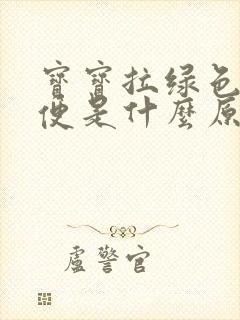 寶寶拉绿色
便是什麼原
盧警官